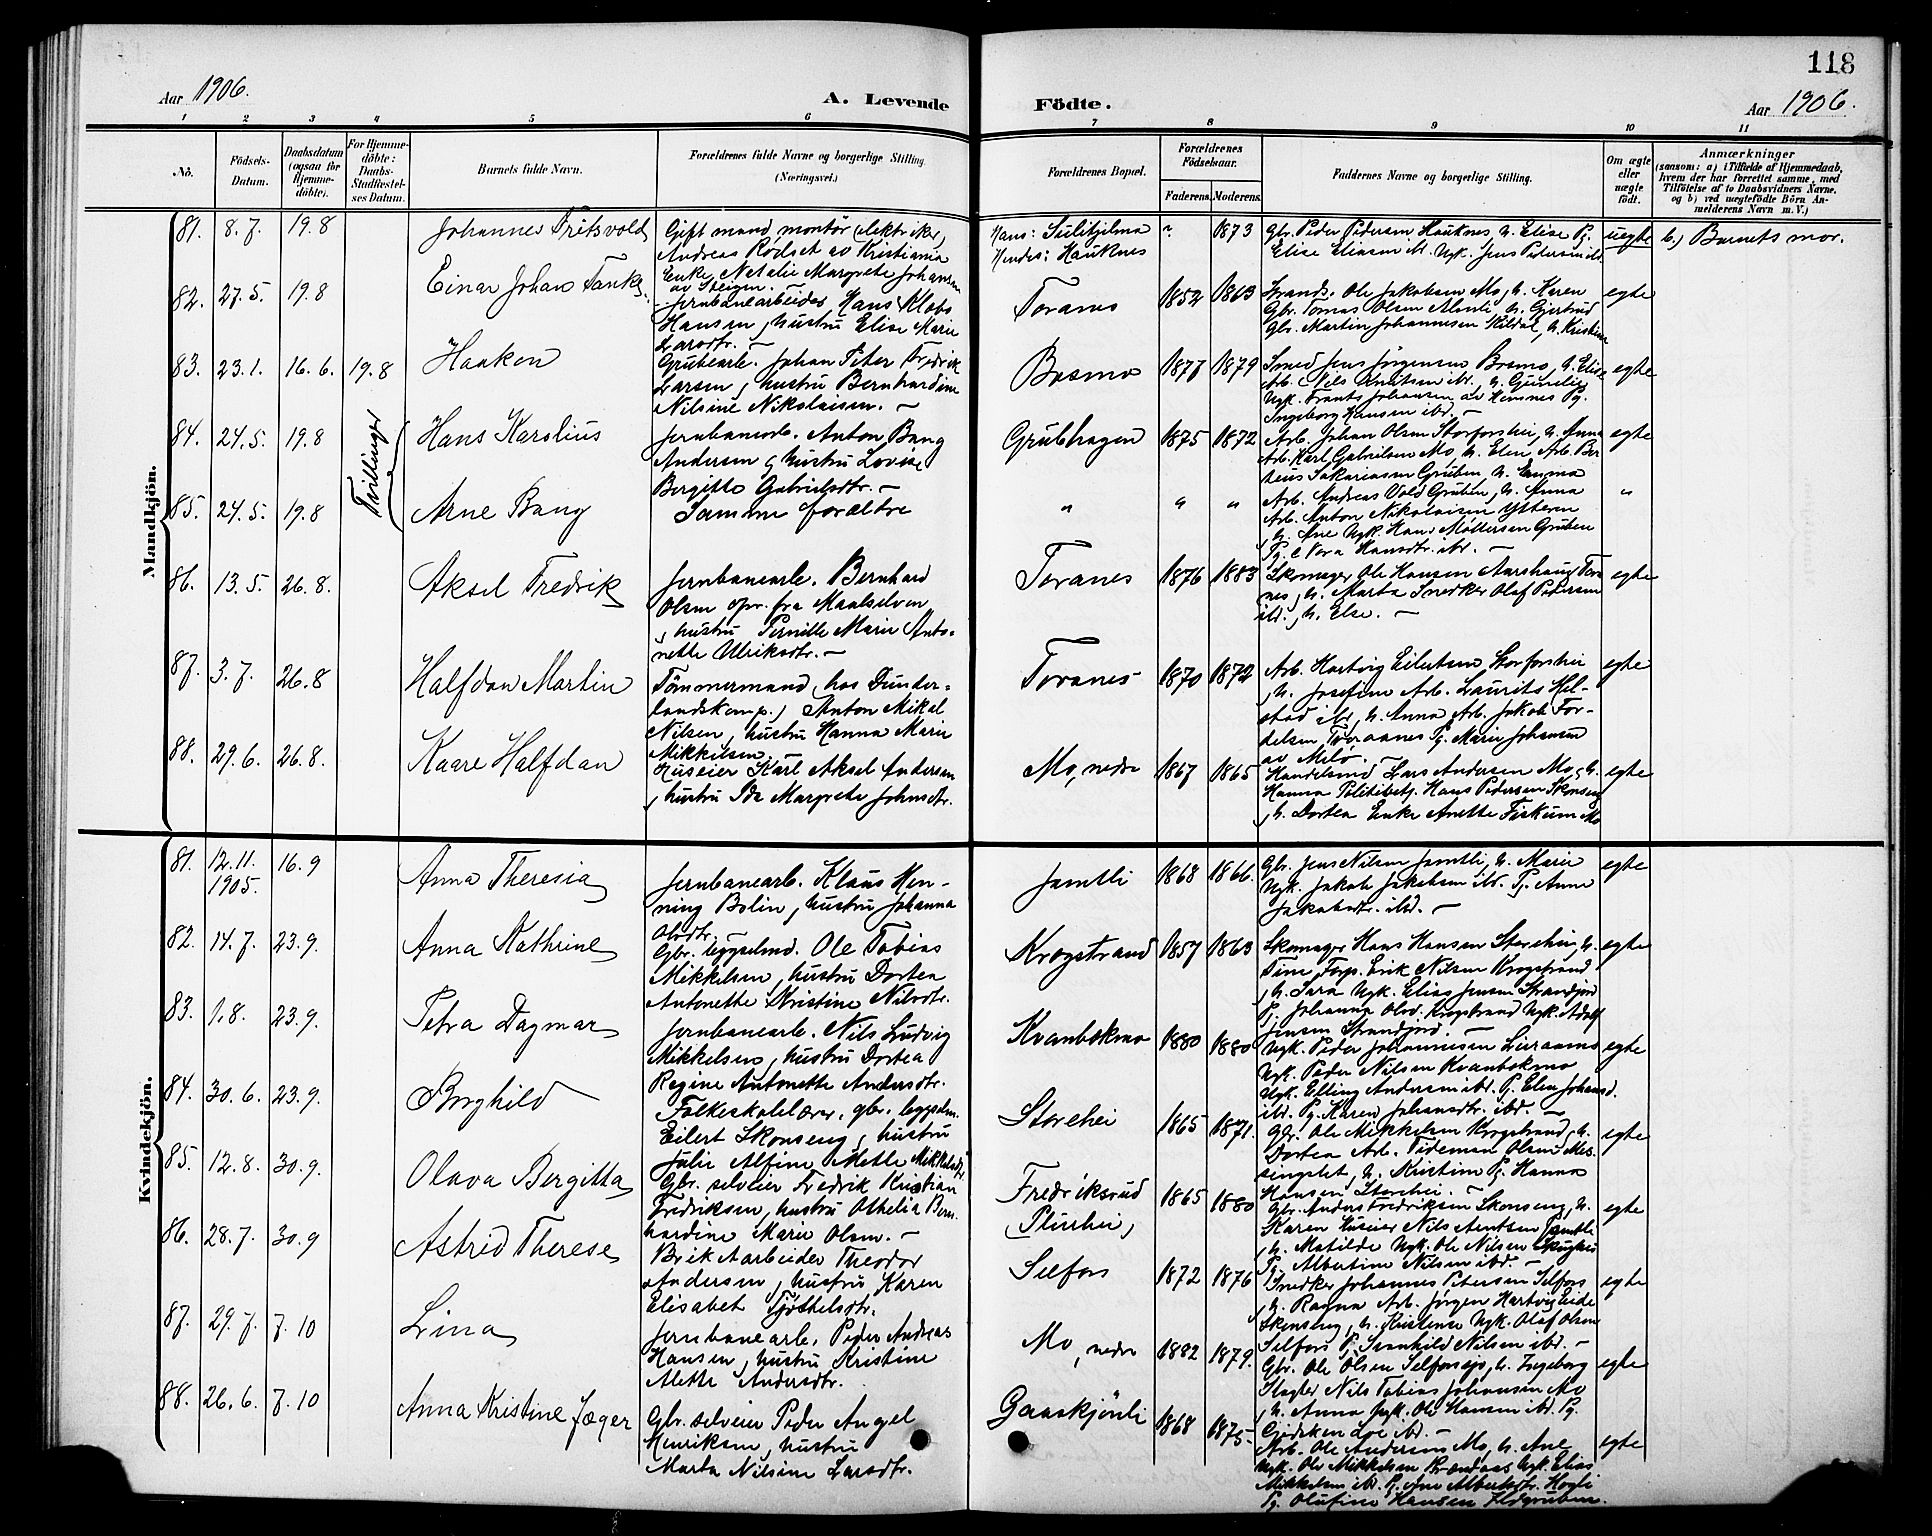 118
Aar 1906.
A. Levende Födte.
Aar 1906.
1 2 3 4 5 6 7 8 9 10 11
No.
Födsels-Datum.
Daabsdatum (ogsaa for Hjemmedöbte).
For Hjemmedöbte: Daabs-Stadfæstelses Datum.
Barnets fulde Navn.
Forældrenes fulde Navne og borgerlige Stilling. (Næringsvei.)
Forældrenes Bopæl.
Forældrenes Födselsaar.
Faderens. Moderens.
Faddernes Navne og borgerlige Stilling.
Om ægte eller uægte födt.
Anmærkninger
(saasom: a) i Tilfælde af Hjemmedaab, hvem der har forrettet samme, med Tilföielse af to Daabsvidners Navne, og b) ved uægtefödte Börn Anmelderens Navn m. V.)
Mandkjön.
81. 8.7. 19.8 Johannes Fritsvold
Gift mand, montör elektriker,
Andreas Rödset av Kristiania
Enke Natalie Margrete Johansen
av Steigen. —
Hans: Sulitjelma
Hendes: Hauknes
? 1873
Gbr. Peder Pedersen Hauknes h. Elise Pg.
Elise Eliasen ib. Ugk. Jens Pedersen ibd.
uegte b.) Barnets mor.
82. 27.5. 19.8 Einar Johan Tank
Jernbanearbeider Hans Klobo
Hansen, hustru Elise Marie
Larsdtr. —
Toranes 1852 1863
Strands. Ole Jakobsen Mo, h. Karen
Gbr. Tomas Olsen Almli, h. Gjertrud
Gbr. Martin Johannesen Skildal, h. Kristine
egte
83. 23.1. 16.6. 19.8 Haakon
Grubearb. Johan Peter Fredrik
Larsen, hustru Bernhardine
Nilsine Nikolaisen. —
Bosmo 1877 1879
Smed Jens Jörgensen Bosmo, h. Elise
Arb. Nils Knutsen ibd., h. Gunelie
Ugk. Frants Johansen av Hemnes Pg.
Ingeborg Hansen ibd. —
egte
84. 24.5. 19.8 Tvillinger Hans Karolius
Jernbanearb. Anton Bang
Andersen, hustru Lovise
Bergitte Gabrielsdtr. —
Grubhaugen 1875 1872
Arb. Johan Olsen Storforshei, h. Anna
Arb. Karl Gabrielsen Mo, h. Elen Arb. Ber
teus Sakariassen Gruben h. Emma
egte
85. 24.5. 19.8 Arne Bang
Samme forældre
" " "
Arb. Andreas Vold Gruben, h. Anna
Arb. Anton Nikolaisen Ytteren
h. Ane Ugk. Hans Möllersen Gruben
Pg. Nora Hansdtr. ibd. —
"
86. 13.5. 26.8. Aksel Fredrik
Jernbanearb. Bernhard
Olsen opr. fra Maalselven
, hustru Pernille Marie Anto-
nette Ulriksdtr. —
Toranes 1876 1883
Skomager Ole Hansen Aarshaug Tora
nes, h. Marta Snedker Olaf Pedersen
ibd., h. Else. —
egte
87. 3.7. 26.8 Halfdan Martin
Tömmermand, hos Dunder-
landskomp., Anton Mikal
Nilsen, hustru Hanna Marie
Mikkelsen,
Toranes 1870 1872
Arb. Hartvig Eilertsen Storforshei
, h. Josefine Arb. Laurits Hel-
stad ibr, h. Anna Arb. Jakob Tor-
kelsen Toraanes Pg. Marie Johansen
av Milö. —
egte
88. 29.6. 26.8. Kaare Halfdan
Huseier Karl Aksel Andersen
, hustru Ida Margrete Johnsdtr.
Mo, nedre 1867 1865
Handelsmd Lars Andersen Mo, h.
Hanna Politibetj. Hans Pedersen Skonseng
, h. Dortea Enke Anette Fiskum Mo
egte
Kvindekjön.
81. 12.11. 1905. 16.9 Anna Theresia
Jernbanearb. Klaus Hen-
ning Bolin, hustru Johanna
Olsdtr. —
Jamtli 1868 1866.
Gbr. Jens Nilsen Jamtli, h. Marie
Ugk. Jakob Jakobsen ibd. Pg. Anne
Jakobsdtr. ibd. —
egte
82. 14.7. 23.9. Anna Kathrine
Gbr. bygselmd. Ole Tobias
Mikkelsen, hustru Dortea
Antonette Kristine Nilsdtr.
Krogstrand 1857 1863
Skomager Hans Hansen Storehei, h.
Tine, Forp. Erik Nilsen Krogstrand
, h. Sara Ugk. Elias Jensen Strandjord
Pg. Johanna Olsd. Krogstrand Ugk. Adolf
Jensen Strandjord. —
egte
83. 1.8. 23.9. Petra Dagmar
Jernbanearb. Nils Ludvig
Mikkelsen, hustru Dortea
Regine Antonette Andersdtr.
Kvanbokmo 1880 1880
Ugk. Peder Johannesen Lieraamo
Ugk. Peder Nilsen Kvanbokmo
Ugk. Elling Andersen ibd. Pg. Elen Johansd.
ibd. Pg. Karen Johansdtr. ibd. —
egte
84. 30.6. 23.9. Borghild
Folkeskolelærer, gbr. bygselm.
Eilert Skonseng, hustru
Julie Alfine Mette Mikkelsdtr
Storehei 1865 1871.
Gbr. Ole Mikkelsen Krogstrand, h.
Dortea Arb. Tideman Olsen Mes-
singslet, h. Kristine Pg. Hanna
Hansen Storehei. —
egte
85. 12.8. 30.9. Olava Bergitta
Gbr. selveier Fredrik Kristian
Fredriksen, hustru Othelia Bern
hardine Marie Olsen. —
Fredriksrud (Plurhei) 1865 1880
Gbr. Anders Fredriksen Skonseng, h.
Karen Huseier Nils Arntsen Jamtli
, h. Matilde Ugk. Ole Nilsen Skughei
Pg. Albertine Nilsen ibd. —
egte
86. 28.7. 30.9 Astrid Therese
Brikaarbeider Theodor
Andersen, hustru Karen
Elisabet Tjöstelsdtr.
Selfors 1872 1876
Snedker Johannes Petersen Selfors
, h. Ragna Arb. Jörgen Hartvig Eide
Skonseng, h. Kristense Ugk. Olaf Olsen
Selfors Pg. Svanhild Nilsen ibd. —
egte
87. 29.7. 7.10 Lina
Jernbanearb. Peder Andreas
Hansen, hustru Kristine
Alette Andersdtr.
Mo, nedre 1882 1879.
Gbr. Ole Olsen Selforssjö, h. Ingeborg
Slagter Nils Tobias Johansen Mo
, h. Anna Ugk. Ole Hansen ibd. Pg.
egte
88. 26.6. 7.10 Anna Kristine Jæger
Gbr. selveier Peder Angel
Henriksen, hustru
Marta Nilsine Larsdtr.
Gaaskjönli 1868 1875
Arb. Ole Andersen Mo, h. Ane
Ugk. Ole Mikkelsen Brændaas Ugk. Elias
Mikkelsen ibd. Pg. Ane Albertsdtr. Hogli
Pg. Olufine Hansen Ildgruben.
egte